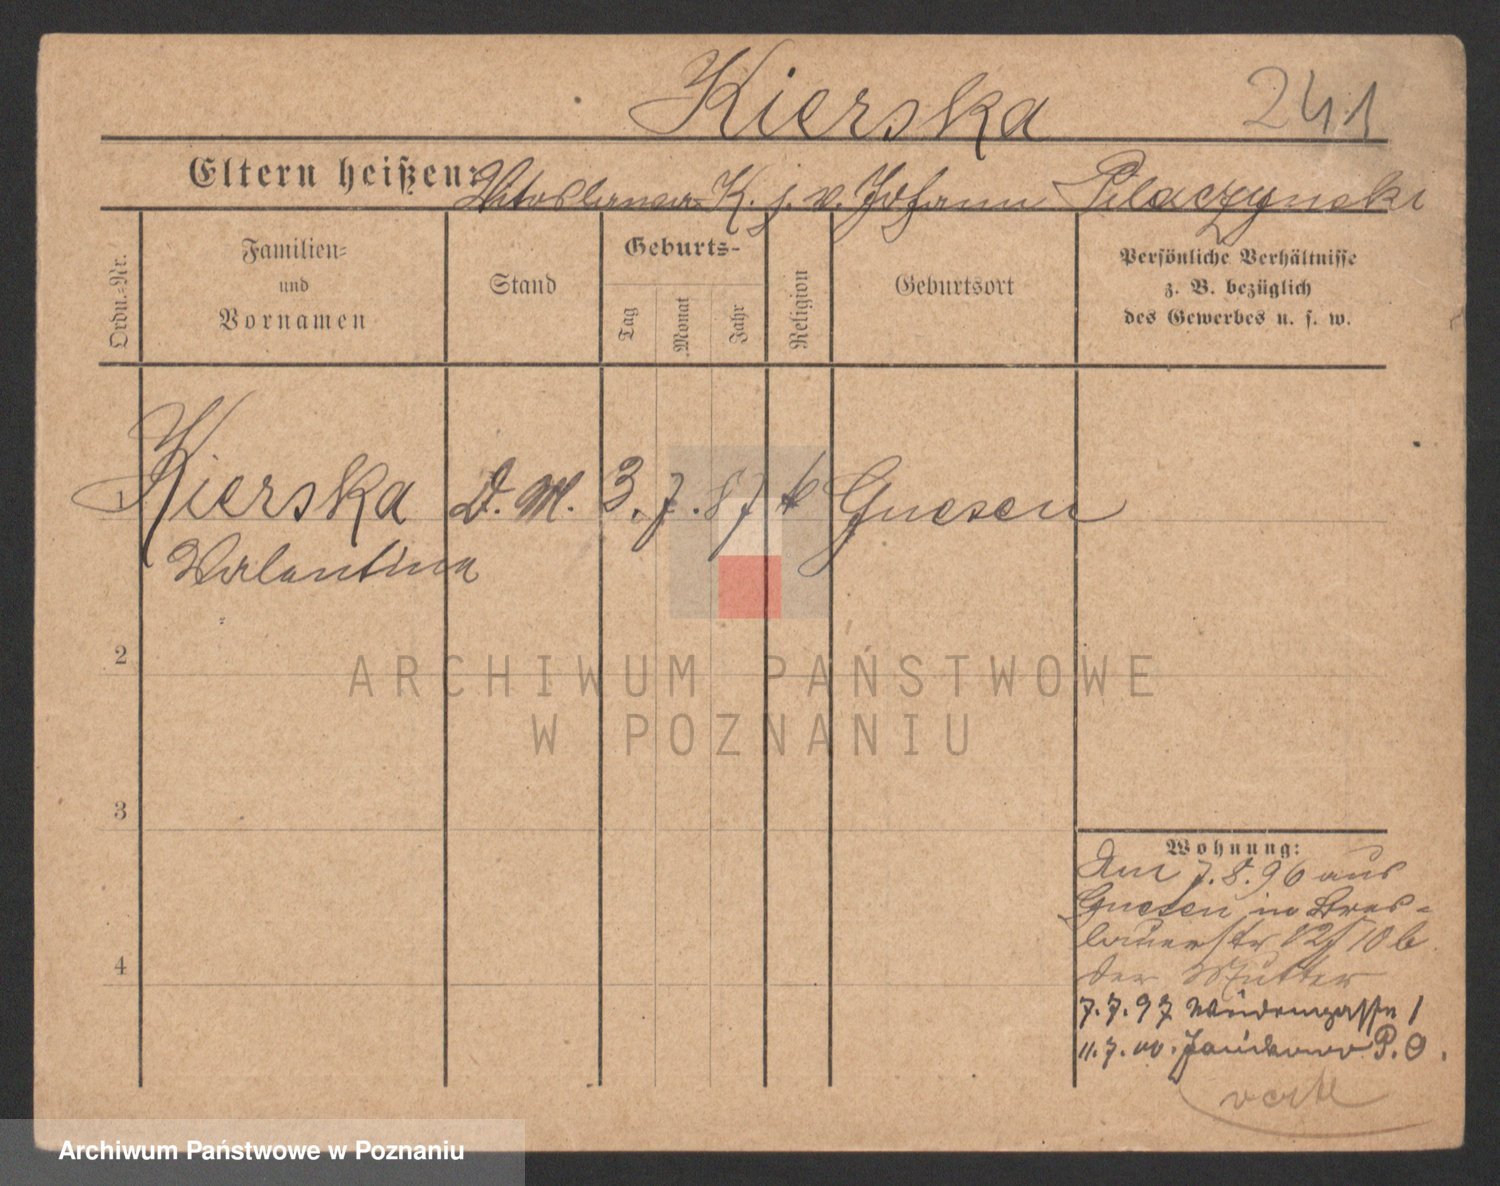 Kierska 241
Eltern heißen: K. j. v. Johann Pilaczynski
Ordn.-Nr.
Familien-
und
Vornamen
Stand
Geburts-
Tag
Monat
Jahr
Religion
Geburtsort
Persönliche Verhältnisse
z. B. bezüglich
des Gewerbes u. s. w.
1 Kierska D. M. 3. 7. 87 k Gnesen
Valentina
2
3
4
Wohnung:
Am 7.8.96 aus
Gnesen in Bres-
lauerstr 12/10 b
der Mutter
7.7.97 Weidengasse 1
11.7.00. Janikowo P. O.
verte
ARCHIWUM PAŃSTWOWE
W POZNANIU
Archiwum Państwowe w Poznaniu